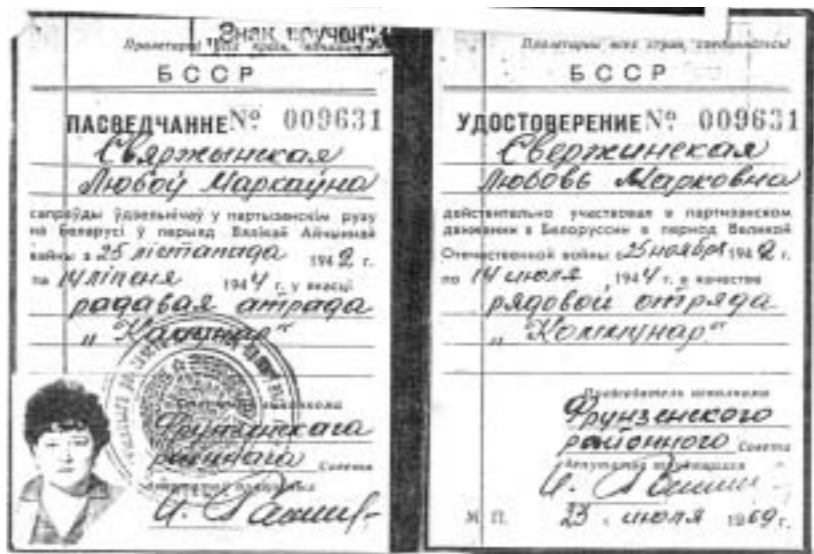 Знак вручон
Пролетарыі ўсіх краін,
БССР
ПАСВЕДЧАННЕ № 009631
Свяржынская
Любоў Маркаўна
сапраўды ўдзельнічаў у партызанскім руху
на Беларусі ў перыяд Вялікай Айчыннай
вайны з 25 лістапада 1942 г.
па 14 ліпеня 1944 г. у якасці
радавая атрада
„Камунар“
выканкома
Фрунзенскага
раённага Савета
дэпутатаў працоўных
Пролетарии всех стран, соединяйтесь!
БССР
УДОСТОВЕРЕНИЕ № 009631
Свержинская
Любовь Марковна
действительно участвовал в партизанском
движении в Белоруссии в период Великой
Отечественной войны с 25 ноября 1942 г.
по 14 июля 1944 г. в качестве
рядовой отряда
„Коммунар“
Председатель исполкома
Фрунзенского
районного Совета
депутатов трудящихся
М. П. 23 июля 1969 г.